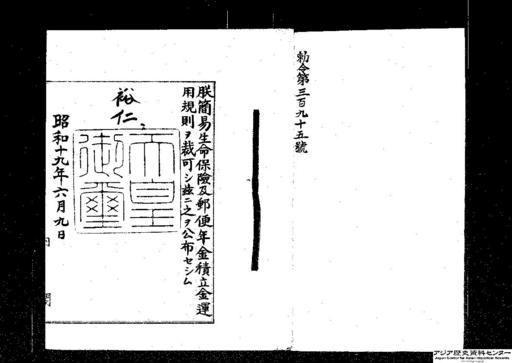 勅令第三百九十五號
朕簡易生命保險及郵便年金積立金運
用規則ヲ裁可シ茲ニ之ヲ公布セシム
裕仁
天皇
御璽
昭和十九年六月九日
アジア歴史資料センター
Japan Center for Asian Historical Records